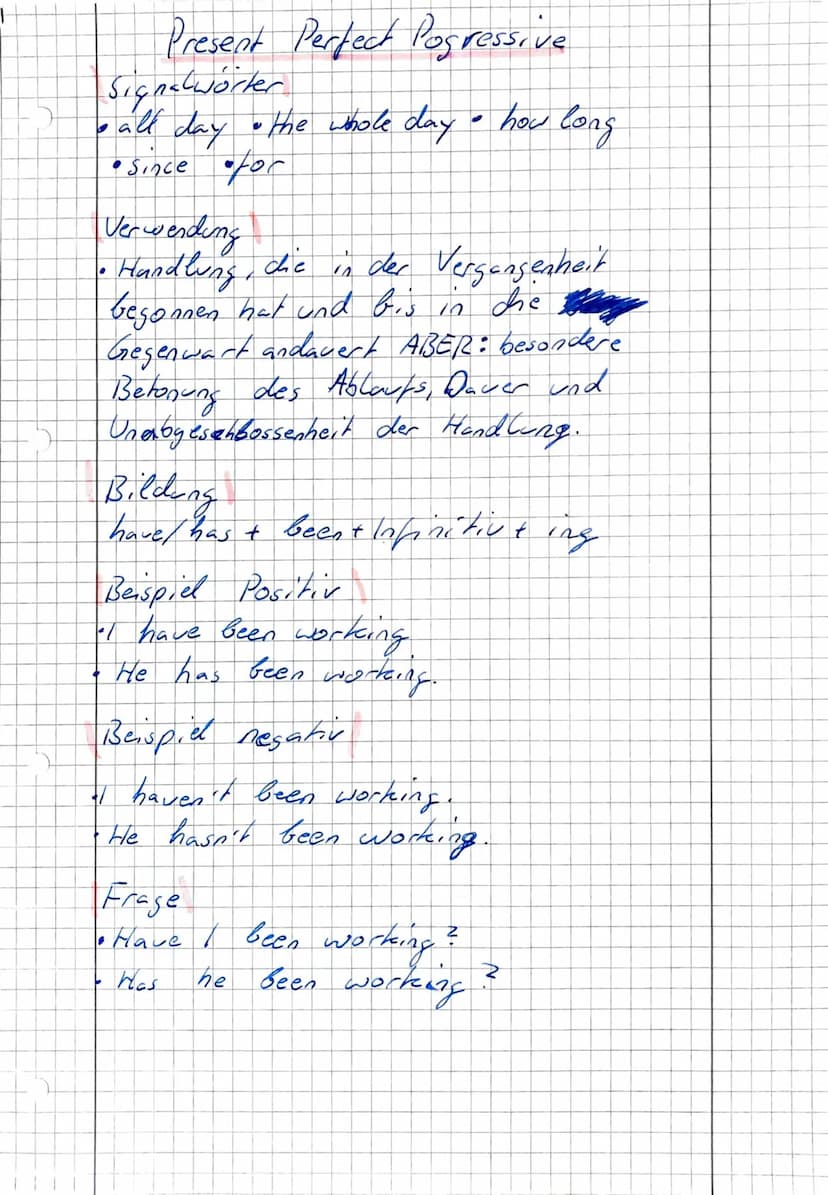 Present Perfect Pogressive
Signalwörter
• all day • the whole day • how long
• since • for
Verwendung
• Handlung, die in der Vergangenheit
begonnen hat und bis in die
Gegenwart andauert ABER: besondere
Betonung des Ablaufs, Dauer und
Unabgeschlossenheit der Handlung.
Bildung
have/has + been + Infinitiv + ing
Beispiel Positiv
• I have been working
• He has been working.
Beispiel negativ
• I haven't been working.
• He hasn't been working.
Frage
• Have I been working?
• Has he been working?